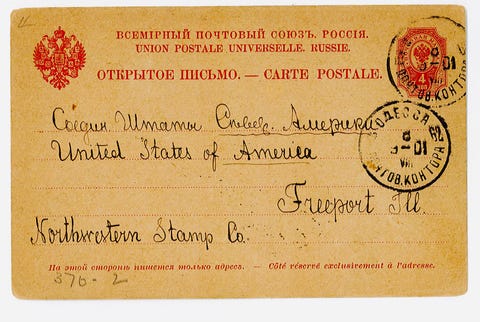 ВСЕМІРНЫЙ ПОЧТОВЫЙ СОЮЗЪ. РОССІЯ.
UNION POSTALE UNIVERSELLE. RUSSIE.
ОТКРЫТОЕ ПИСЬМО. — CARTE POSTALE.
4
01
ПОЧТОВ. КОНТОРА
Соедин. Штаты Север. Америки
United States of America
ОДЕССА
8
01
VIII
ПОЧТОВ. КОНТОРА
Freeport Ill.
Northwestern Stamp Co.
На этой сторонѣ пишется только адресъ. — Côté réservé exclusivement à l'adresse.
376-2